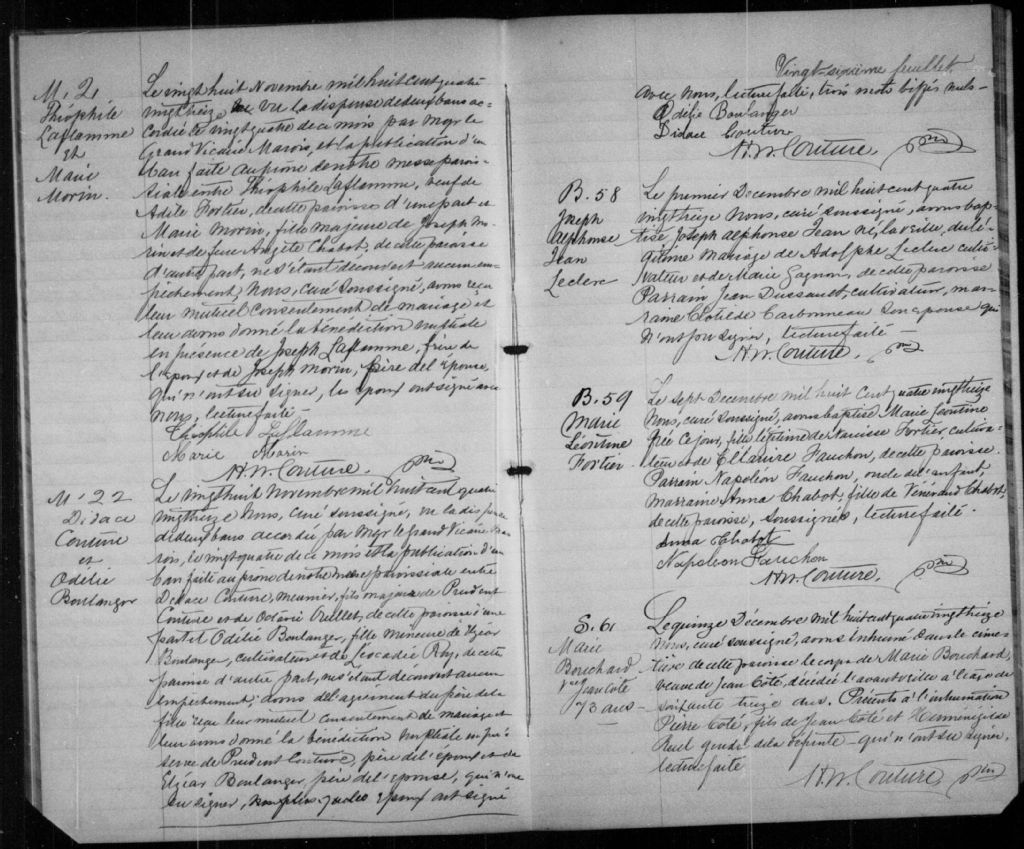 M. 21
Théophile
Laflamme
et
Marie
Morin.
Le vingt huit Novembre mil huit cent quatre
vingt treize vu la dispense de deux bans ac-
cordée le vingt quatre de ce mois par Mgr le
Grand Vicaire Marois, et la publication d'un
ban faite au prône de notre messe parois-
siale entre Théophile Laflamme, veuf de
Adèle Fortier, de cette paroisse d'une part et
Marie Morin, fille majeure de Joseph Mo-
rin et de feue Angèle Chabot, de cette paroisse
d'autre part, ne s'étant découvert aucun em-
pêchement, Nous, curé soussigné, avons reçu
leur mutuel consentement de mariage et
leur avons donné la bénédiction nuptiale
en présence de Joseph Laflamme, frère de
l'époux et de Joseph Morin, frère de l'épouse,
qui n'ont su signer, les époux ont signé avec
nous, lecture faite —
Théophile Laflamme
Marie Morin
H. W. Couture. ptre
M. 22
Didace
Couture
et
Odélie
Boulanger
Le vingt huit novembre mil huit cent quatre
vingt treize Nous, curé soussigné, vu la dispense
de deux bans accordée par Mgr le Grand Vicaire Ma-
rois, le vingt quatre de ce mois et la publication d'un
ban faite au prône de notre messe paroissiale entre
Didace Couture, meunier, fils majeur de Prudent
Couture et de Octavie Ouellet, de cette paroisse d'une
part et Odélie Boulanger, fille mineure de Elzéar
Boulanger, cultivateur et de Léocadie Roy, de cette
paroisse d'autre part, ne s'étant découvert aucun
empêchement, avons de l'agrément du père de la
fille reçu leur mutuel consentement de mariage et
leur avons donné la bénédiction nuptiale en pré-
sence de Prudent Couture, père de l'époux et de
Elzéar Boulanger, père de l'épouse, qui n'ont
su signer, les époux ont signé
Vingt-sixième feuillet
avec nous, lecture faite, trois mots biffés nuls-
Odélie Boulanger
Didace Couture
H. W. Couture, ptre
B. 58
Joseph
Alphonse
Jean
Leclerc
Le premier Décembre mil huit cent quatre
vingt treize Nous, curé soussigné, avons bap-
tisé Joseph Alphonse Jean né, la veille, du lé-
gitime mariage de Adolphe Leclerc culti-
vateur et de Marie Gagnon, de cette paroisse
Parrain Jean Dussault, cultivateur, mar-
raine Clotilde Carbonneau son épouse qui
n'ont su signer, lecture faite —
H. W. Couture. ptre
B. 59
Marie
Léontine
Fortier
Le sept Décembre mil huit cent quatre vingt treize
Nous, curé soussigné, avons baptisé Marie Léontine
née ce jour, fille légitime de Narcisse Fortier, cultiva-
teur et de Fauchon, de cette paroisse.
Parrain Napoléon Fauchon, oncle de l'enfant,
marraine Anna Chabot, fille de Vénérand Chabot,
de cette paroisse, soussignés, lecture faite.
Anna Chabot
Napoléon Fauchon
H. W. Couture, ptre
S. 61
Marie
Bouchard
Vve Jean Côté
73 ans —
Le quinze Décembre mil huit cent quatre vingt treize
Nous, curé soussigné, avons inhumé dans le cime-
tière de cette paroisse le corps de Marie Bouchard,
veuve de Jean Côté, décédée l'avant veille à l'âge de
soixante treize ans. Présents à l'inhumation
Pierre Côté, fils de Jean Côté et Herménégilde
gendre de la défunte — qui n'ont su signer,
lecture faite
H. W. Couture, ptre